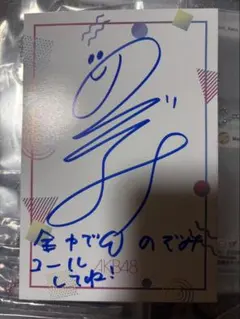 のぞみ
全力で のぞみ
コール
してね!
AKB48